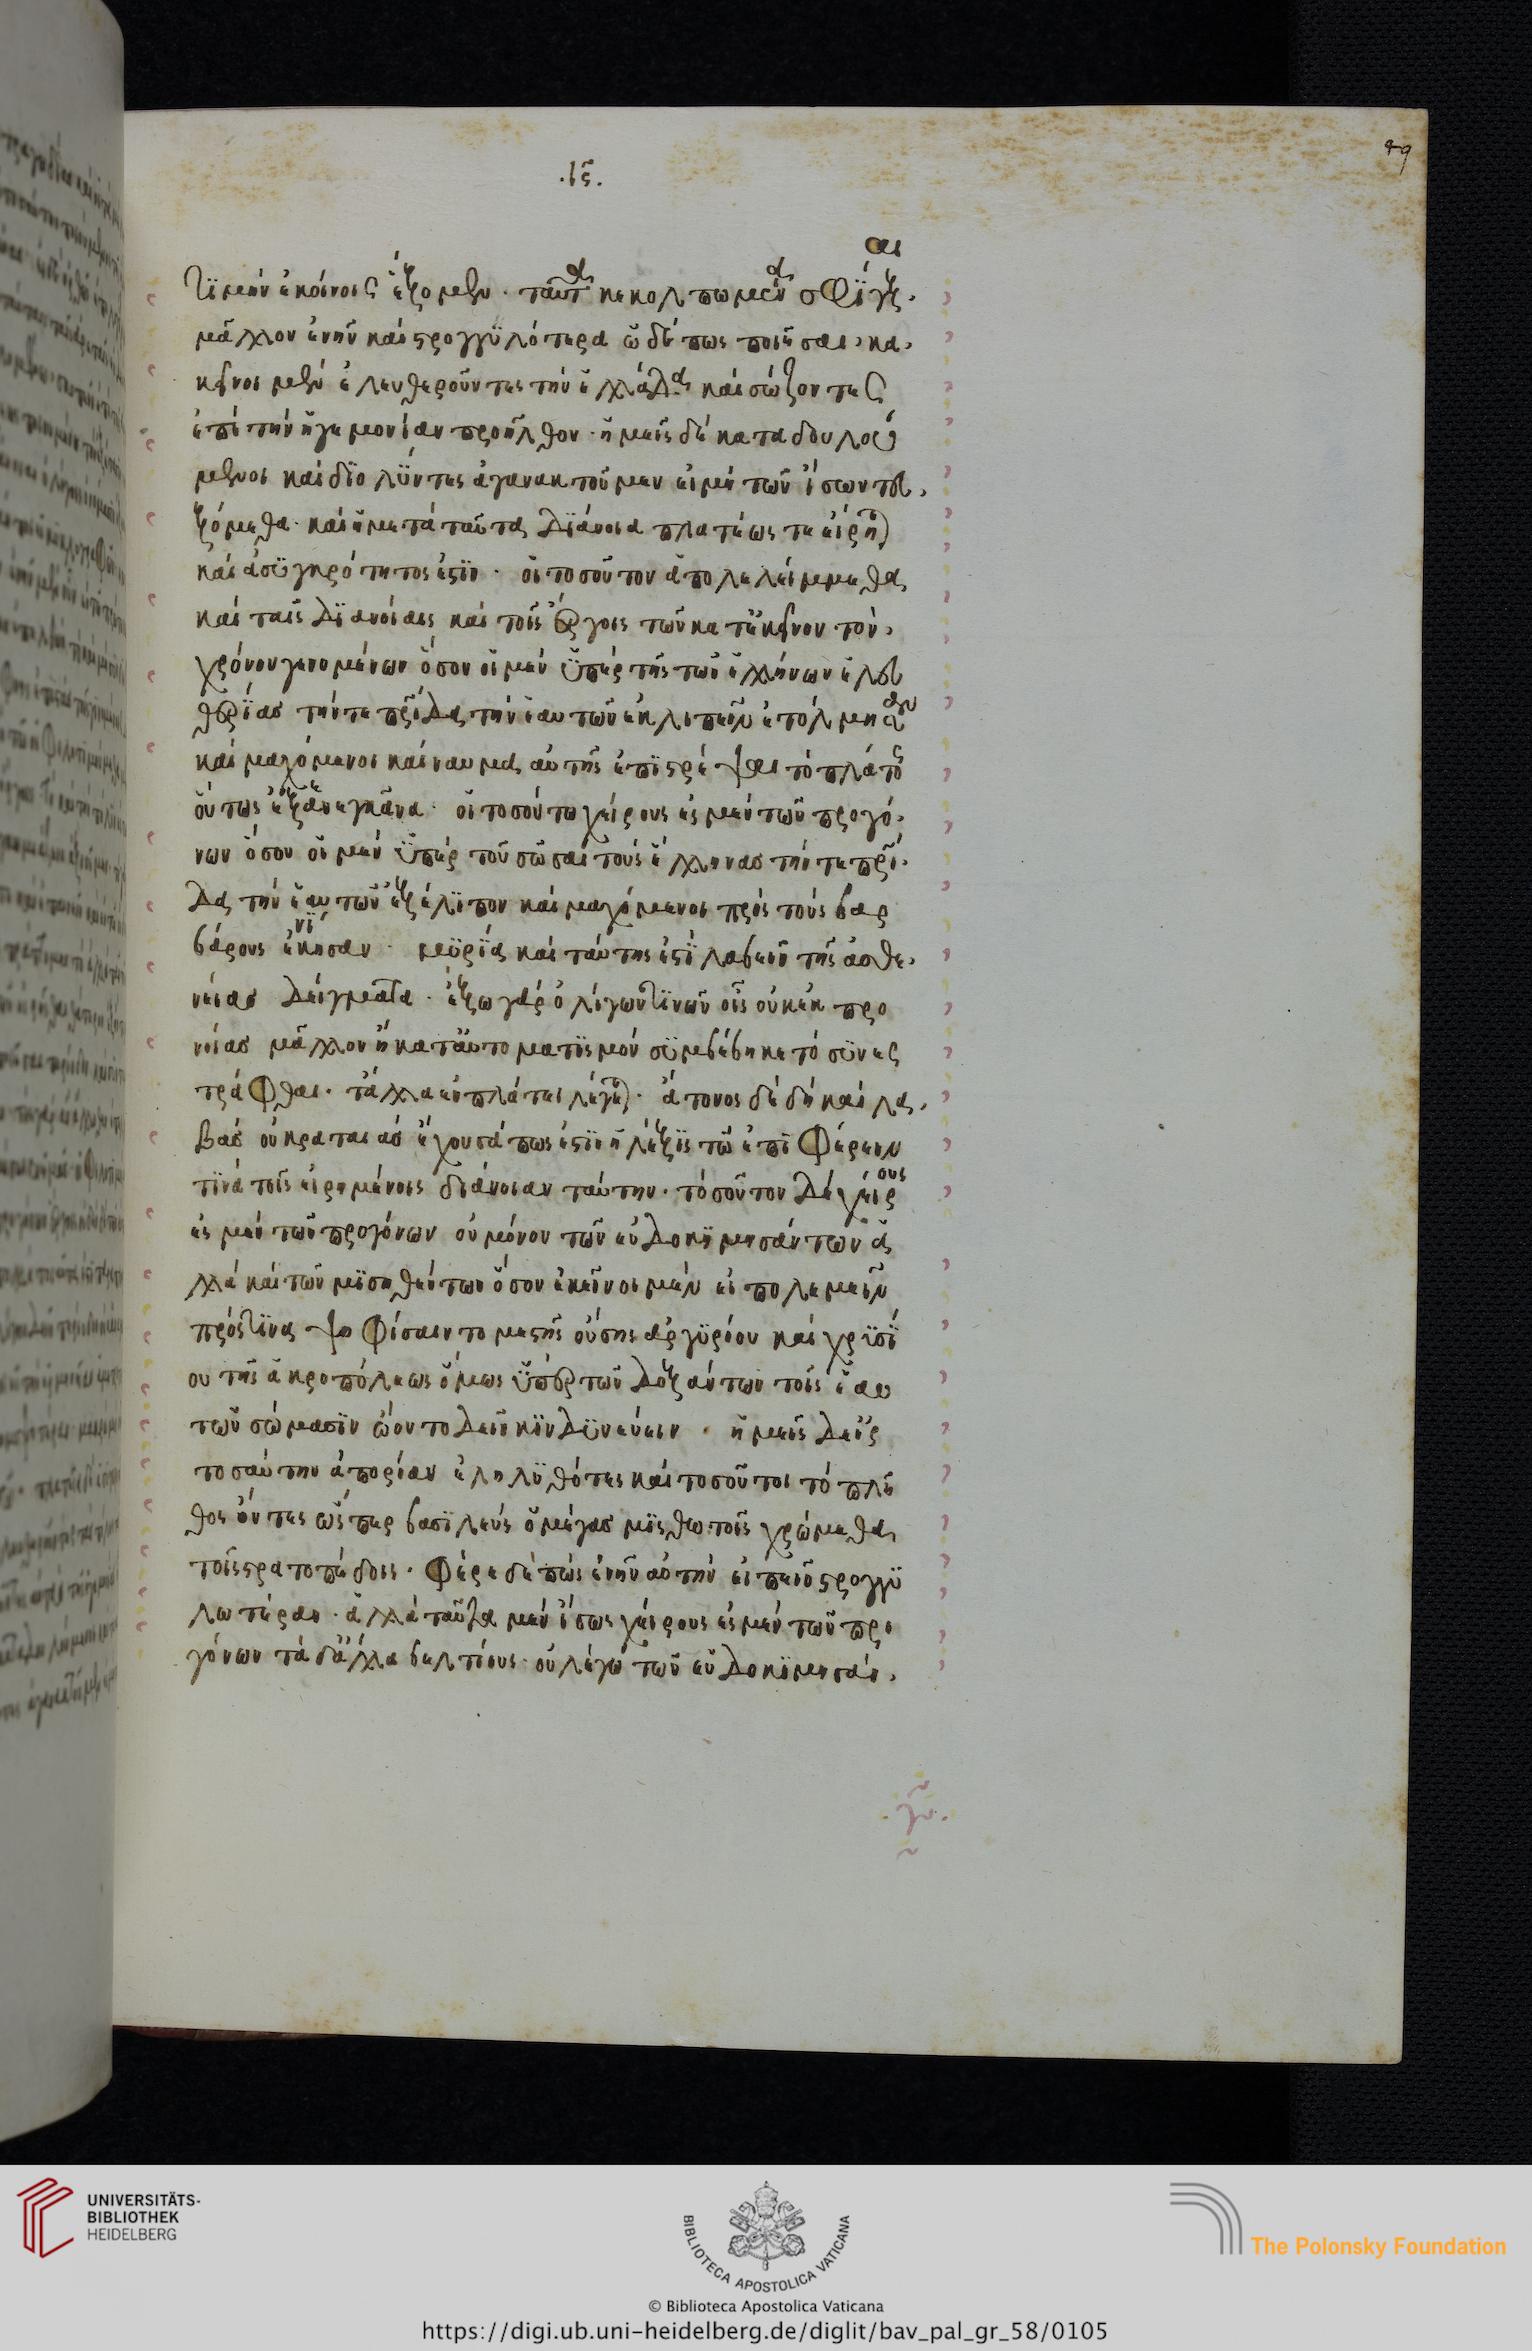 89
.ιϛ.
τιμὴν ἐκείνοις ἕξομεν. ταῦτα κεκολπωμένα σφίγξαι
μᾶλλον ἐνῆν καὶ στρογγυλότερα ὧδέ πως ποιῆσαι. κα
κεῖνοι μὲν ἐλευθεροῦντες τὴν ἑλλάδα καὶ σώζοντες
ἐπὶ τὴν ἡγεμονίαν προῆλθον. ἡμεῖς δὲ καταδουλού
μενοι καὶ διολύντες ἀγανακτοῦμεν εἰ μὴ τῶν ἴσων τευ
ξόμεθα. καὶ ἡ μετὰ ταῦτα διάνοια πλατέως τε εἴρηται
καὶ ἀσυγκρότητος ἐστιν. οἳ τοσοῦτον ἀπολελείμμεθα
καὶ ταῖς διανοίαις καὶ τοῖς ἔργοις τῶν κατ' ἐκεῖνον τὸν
χρόνον γενομένων ὅσον οἱ μὲν ὑπὲρ τῆς τῶν ἑλλήνων ἐλευ
θερίας τήν τε πρίδα τὴν ἑαυτῶν ἐκλιπεῖν ἐτόλμησαν
καὶ μαχόμενοι καὶ ναυμα αὐτῆς ἐπιστρέψαι τὸ πλάτος
οὕτως ἐξῆν οἳ τοσούτω χείρους ἐσμὲν τῶν προγό
νων ὅσον οἱ μὲν ὑπὲρ τοῦ σῶσαι τοὺς ἕλληνας τήν τε πρί
δα τὴν ἑαυτῶν ἐξέλιπον καὶ μαχόμενοι πρὸς τοὺς βαρ
βάρους ἐνίκησαν. μυρία καὶ ταύτης ἐστὶ λαβεῖν τῆς ἀσθε
νείας δείγματα. ἔξω γὰρ ὀλίγων τινῶν οἷς οὐκ ἐκ προ
νοίας μᾶλλον ἢ κατ' αὐτοματισμὸν συμβέβηκε τὸ συνεσ
τράφθαι. τἄλλα ἐν πλάτει λέγεται. ἄτονος δὲ δὴ καὶ λα
βὰς οὐ κραταιὰς ἔχουσά πως ἐστὶν ἡ λέξις τῶ ἐπιφέρειν
τινὰ τοῖς εἰρημένοις διάνοιαν ταύτην. τοσοῦτον δὲ χείρους
ἐσμὲν τῶν προγόνων οὐ μόνον τῶν εὐδοκιμησάντων ἀ
λλὰ καὶ τῶν μισηθέντων ὅσον ἐκεῖνοι μὲν εἰ πολεμεῖν
πρός τινας ψηφίσαιντο μεστῆς οὔσης ἀργυρίου καὶ χρυσί
ου τῆς ἀκροπόλεως ὅμως ὑπὲρ τῶν δοξάντων τοῖς ἑαυ
τῶν σώμασιν ὤοντο δεῖν κινδυνεύειν. ἡμεῖς δ' εἰς
τοσαύτην ἀπορίαν ἐληλυθότες καὶ τοσοῦτοι τὸ πλῆ
θος ὄντες ὥσπερ βασιλεὺς ὁ μέγας μισθωτοῖς χρώμεθα
τοῖς στρατοπέδοις. φέρε δὲ πῶς ἐνῆν αὐτὴν εἰπεῖν στρογγυ
λωτέραν. ἀλλὰ ταῦτα μὲν ἴσως χείρους ἐσμὲν τῶν προ
γόνων τὰ δ' ἄλλα βελτίους. οὐ λέγω τῶν εὐδοκιμησάν
UNIVERSITÄTS-
BIBLIOTHEK
HEIDELBERG
BIBLIOTECA APOSTOLICA VATICANA
The Polonsky Foundation
© Biblioteca Apostolica Vaticana
https://digi.ub.uni-heidelberg.de/diglit/bav_pal_gr_58/0105